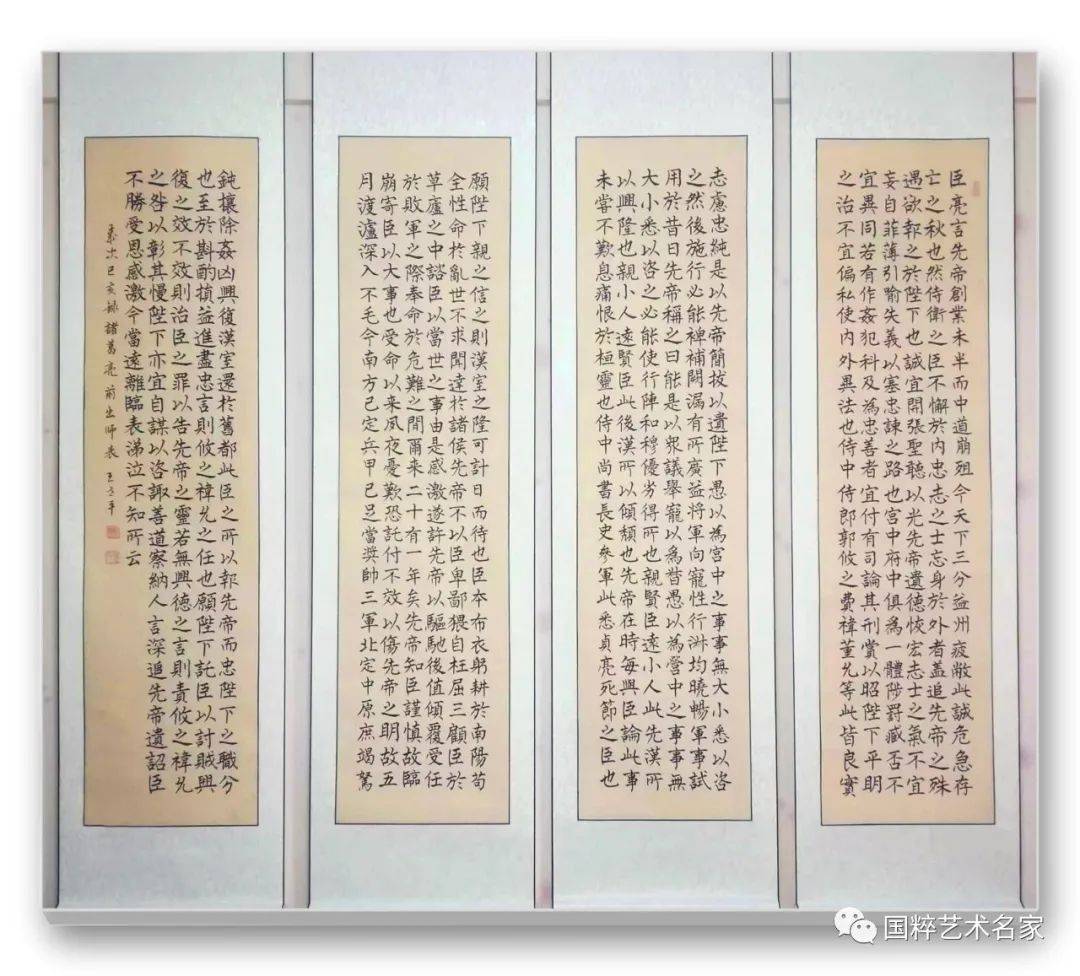 臣亮言先帝創業未半而中道崩殂今天下三分益州疲敝此誠危急存
亡之秋也然侍衛之臣不懈於內忠志之士忘身於外者盖追先帝之殊
遇欲報之於陛下也誠宜開張聖聽以光先帝遺德恢宏志士之氣不宜
妄自菲薄引喻失義以塞忠諫之路也宮中府中俱為一體陟罰臧否不
宜異同若有作姦犯科及為忠善者宜付有司論其刑賞以昭陛下平明
之治不宜偏私使內外異法也侍中侍郎郭攸之費禕董允等此皆良實
志慮忠純是以先帝簡拔以遺陛下愚以為宮中之事事無大小悉以咨
之然後施行必能裨補闕漏有所廣益將軍向寵性行淑均曉暢軍事試
用於昔日先帝稱之曰能是以眾議舉寵以為督愚以為營中之事事無
大小悉以咨之必能使行陣和穆優劣得所也親賢臣遠小人此先漢所
以興隆也親小人遠賢臣此後漢所以傾頹也先帝在時每與臣論此事
未嘗不歎息痛恨於桓靈也侍中尚書長史參軍此悉貞亮死節之臣也
願陛下親之信之則漢室之隆可計日而待也臣本布衣躬耕於南陽苟
全性命於亂世不求聞達於諸侯先帝不以臣卑鄙猥自枉屈三顧臣於
草廬之中諮臣以當世之事由是感激遂許先帝以驅馳後值傾覆受任
於敗軍之際奉命於危難之間爾来二十有一年矣先帝知臣謹慎故臨
崩寄臣以大事也受命以来夙夜憂歎恐託付不效以傷先帝之明故五
月渡瀘深入不毛今南方已定兵甲已足當奬帥三軍北定中原庶竭駑
鈍攘除姦凶興復漢室還於舊都此臣之所以報先帝而忠陛下之職分
也至於斟酌損益進盡忠言則攸之禕允之任也願陛下託臣以討賊興
復之效不效則治臣之罪以告先帝之靈若無興德之言則責攸之禕允
之咎以彰其慢陛下亦宜自謀以咨諏善道察納人言深追先帝遺詔臣
不勝受恩感激今當遠離臨表涕泣不知所云
歲次己亥錄諸葛亮前出師表
国粹艺术名家